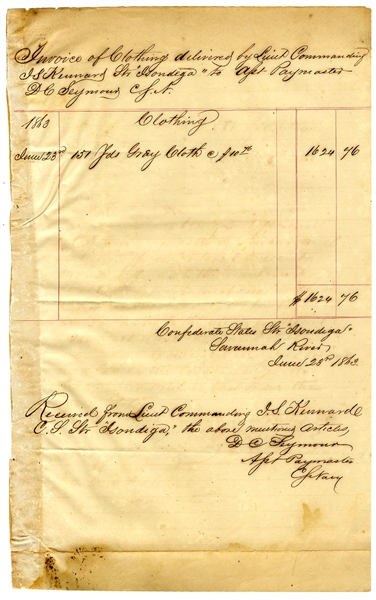 Invoice of Clothing delivered by Lieut Commanding
J S Kennard Str "Isondega" to Asst Paymaster
D C Seymour C.S.N.
1863 Clothing
June 23rd 157 Yds Gray Cloth @ 1624 76
$1624 76
Confederate States Str "Isondega"
Savannah River
June 23rd 1863.
Received from Lieut Commanding J. S. Kennard
C. S. Str "Isondega," the above mentioned articles,
D C Seymour
Asst Paymaster
CSNavy